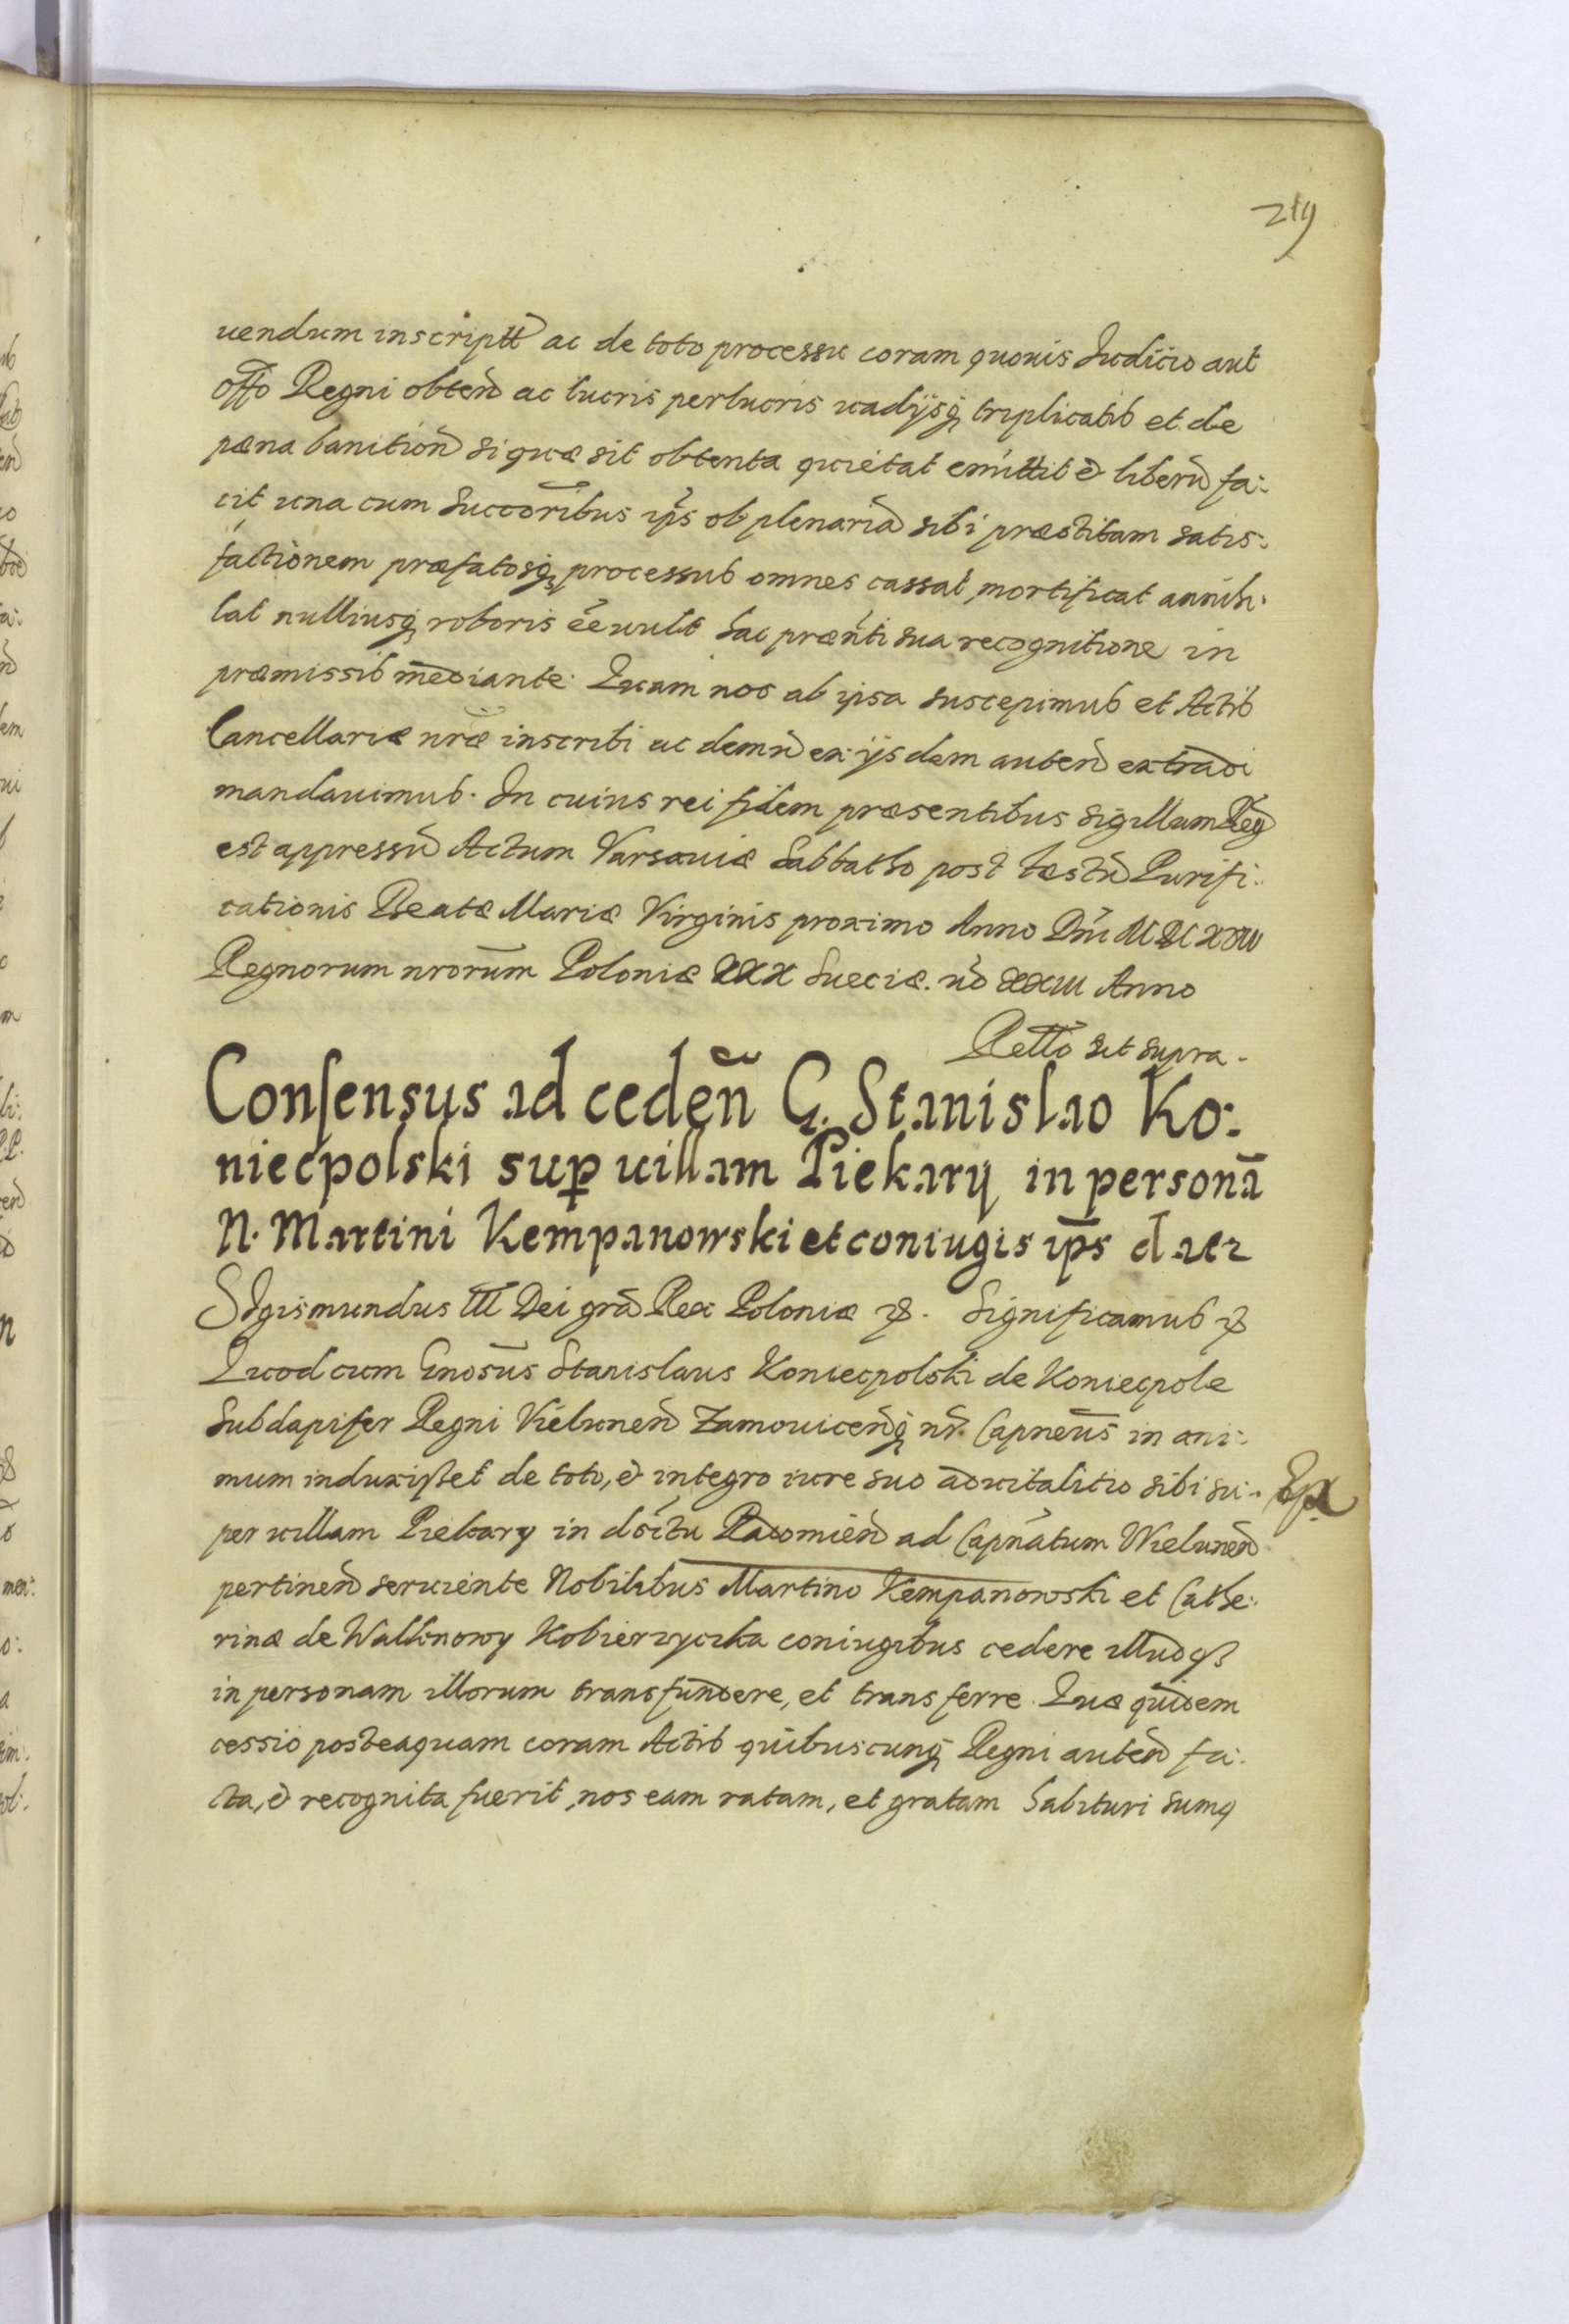 219
uendum inscriptt ac de toto processu coram quouis Iudicio aut
offo Regni obten ac lucris perlucris uadijsq triplicatis et de
pæna banition si quæ sit obtenta quietat emittit & liberu fa:
cit una cum Succoribus ips ob plenaria sibi præstitam satis:
factionem præfatosq processus omnes cassat mortificat annih:
lat nulliusq roboris ee uult hac prænti sua recognitione in
præmissis mediante. Quam nos ab ipsa suscepimus et Actis
Cancellariæ nræ inscribi ac demu ex ijsdem auten extradi
mandauimus. In cuius rei fidem præsentibus sigillum Reg
est appressu Actum Varsauiæ Sabbatho post festu Purifi:
cationis Beatæ Mariæ Virginis proximo Anno Dni
Regnorum nrorum Poloniæ XXX Sueciæ uo XXIII Anno
Retto ut supra.
Consensus ad ceden G. Stanislao Ko:
niecpolski sup uillam Piekary in persona
N. Martini Kempanowski et coniugis ips datr
Sigismundus III Dei gra Rex Poloniæ &. Significamus &
Quod cum Gnosus Stanislaus Koniecpolski de Koniecpole
Subdapifer Regni Vielunen Zamouicenq nr. Capneus in ani:
mum induxisset de toto, & integro iure suo aduitalitio sibi su:
per uillam Piekary in dsctu Radomien ad Capnatum Wielunen
pertinen seruiente Nobilibus Martino Kempanowski et Cathe:
rinæ de Walknowy Kobierzycka coniugibus cedere illudq
in personam illorum transfundere, et transferre. Quæ quidem
cessio posteaquam coram Actis quibuscunq Regni auten fa:
cta, & recognita fuerit, nos eam ratam, et gratam habituri sumq